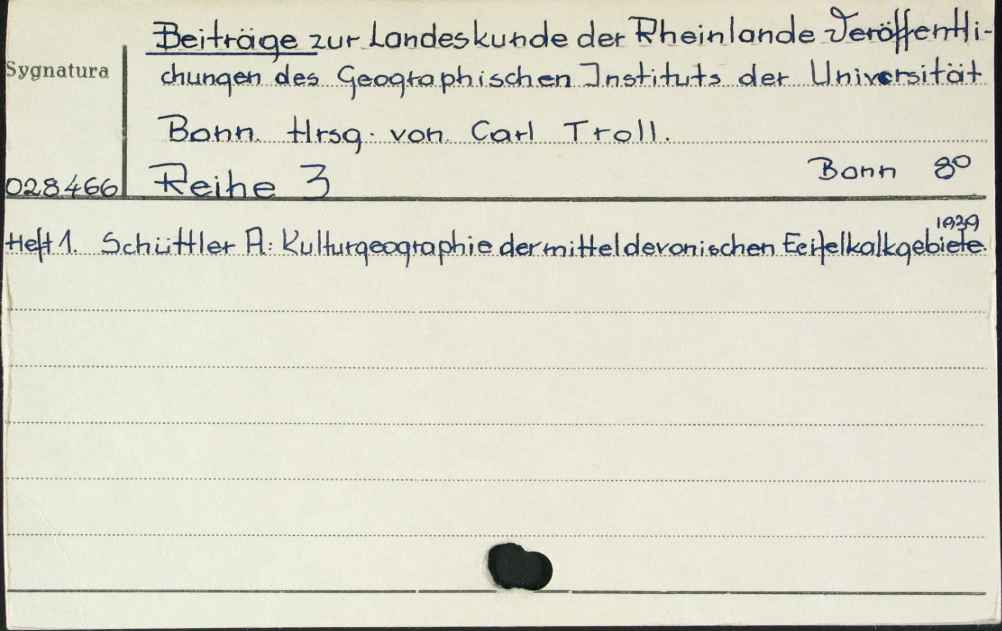 Beiträge zur Landeskunde der Rheinlande Veröffentli-
Sygnatura
chungen des Geographischen Instituts der Universität
Bonn. Hrsg. von Carl Troll.
028466
Reihe 3
Bonn 8°
1939
Heft 1. Schüttler A: Kulturgeographie der mitteldevonischen Eeifelkalkgebiete.